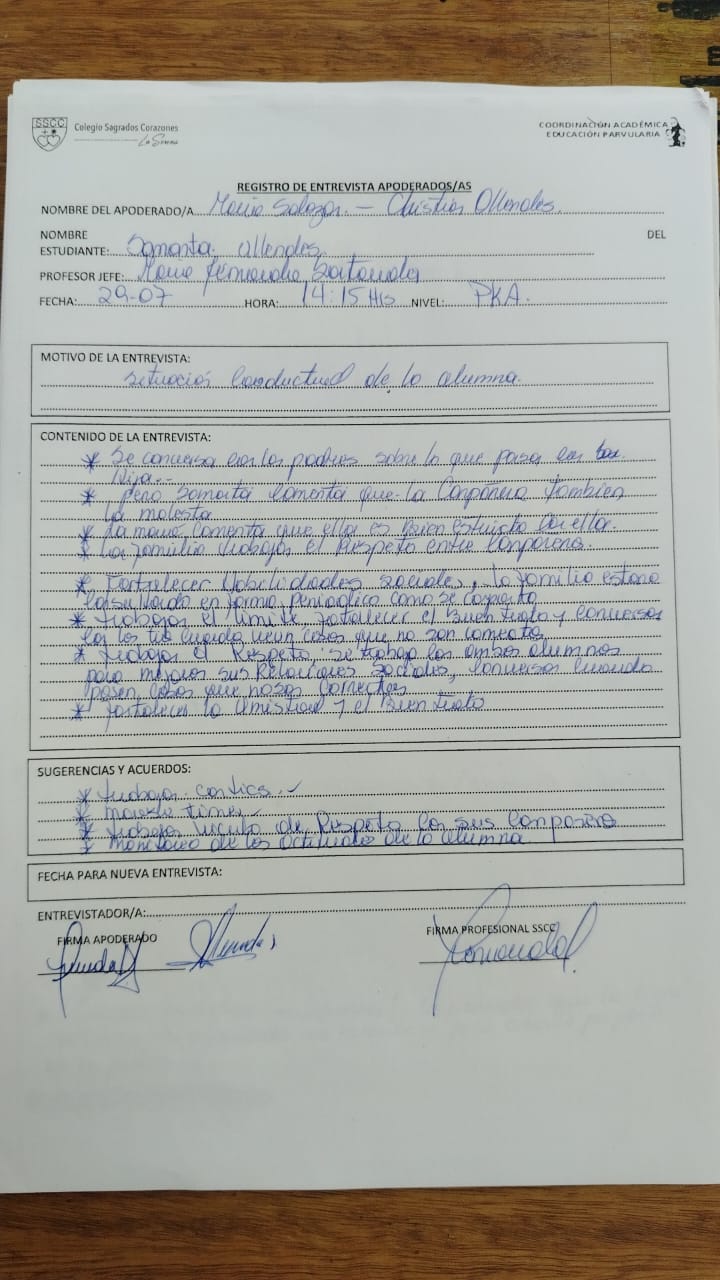 SSCC
Colegio Sagrados Corazones
La Serena
COORDINACIÓN ACADÉMICA
EDUCACIÓN PARVULARIA
REGISTRO DE ENTREVISTA APODERADOS/AS
NOMBRE DEL APODERADO/A Maria Salazar. – Christian Allendes.
NOMBRE DEL
ESTUDIANTE: Samanta Allendes.
PROFESOR JEFE: Maria Fernanda
FECHA: 29-07 HORA: 14:15 Hrs NIVEL: PKA.
MOTIVO DE LA ENTREVISTA:
situación conductual de la alumna.
CONTENIDO DE LA ENTREVISTA:
* Se conversa con los padres sobre lo que pasa con
niña.
* pero Samanta comenta que la compañera tambien
la molesta
* La mamá comenta que ella es bien estricta con ella.
* La familia trabajar el Respeto entre compañera.
* Fortalecer Habilidades sociales, la familia estara
consultando en forma periodica como se comporta
* trabajar el limite, fortalecer el buen trato y conversar
con los tios cuando vean cosas que no son correctas
* trabajar el Respeto, se trabaja con ambos alumnos
para mejorar sus Relaciones sociales, conversar cuando
pasen cosas que no son correctas
* fortalecer la amistad y el Buen trato
SUGERENCIAS Y ACUERDOS:
* trabajar con tics
* timer
* trabajar vinculo de Respeto con sus compañeros
* monitoreo de las actividades de la alumna.
FECHA PARA NUEVA ENTREVISTA:
ENTREVISTADOR/A:
FIRMA APODERADO
FIRMA PROFESIONAL SSCC